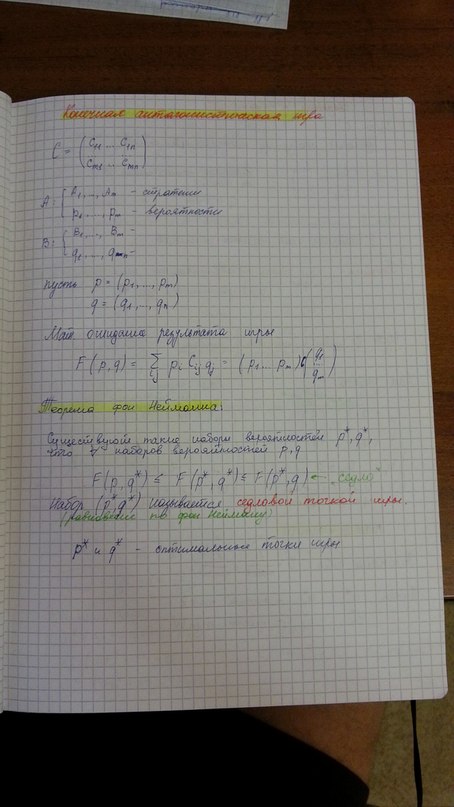 Конечная антагонистическая игра
C = ( C11 ... C1n
Cm1 ... Cmn )
A: { A1, ..., Am - стратегии
p1, ..., pm - вероятности
B: { B1, ..., Bm -
q1, ..., qn -
пусть p = (p1, ..., pm)
q = (q1, ..., qn)
Мат. ожидание результата игры
F(p, q) = ∑ij pi Cij qj = (p1 ... pm) C ( q1 ... qm )
Теорема фон Неймана:
Существуют такие наборы вероятностей p*, q*,
что ∀ наборов вероятностей p, q
F(p, q*) ≤ F(p*, q*) ≤ F(p*, q) ← "седло"
Набор (p*, q*) называется седловой точкой игры.
(равновесие по фон Нейману)
p* и q* - оптимальное точки игры